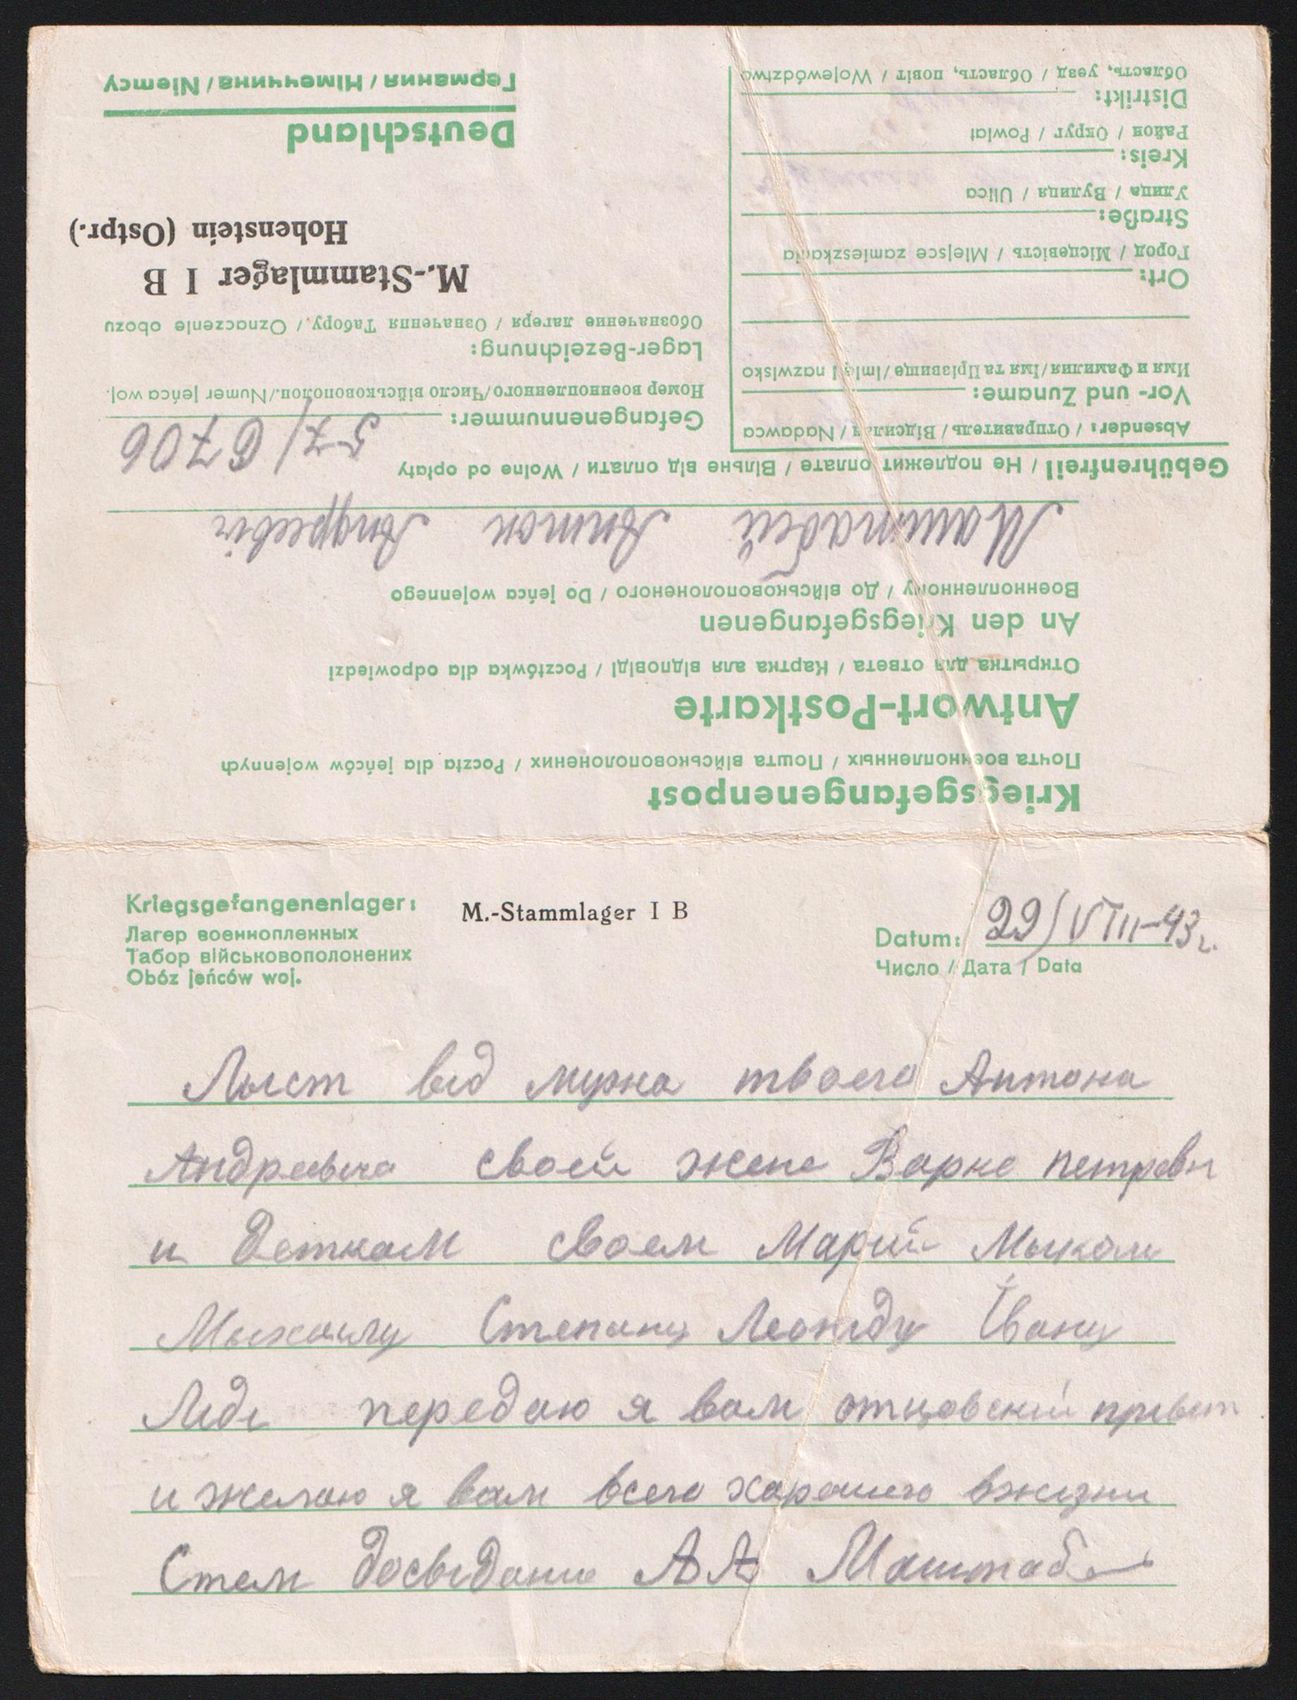 Kriegsgefangenenpost
Почта военнопленных / Пошта військовополонених / Poczta dla jeńców wojennych
Antwort-Postkarte
Открытка для ответа / Картка аля відповіді / Pocztówka dla odpowiedzi
An den Kriegsgefangenen
Военнопленному / До військовополоненого / Do jeńca wojennego
Маштабей Антон Андреевіч
Gebührenfrei! / Не подлежит оплате / Вільне від оплати / Wolne od opłaty
Absender: / Отправитель / Відсилач / Nadawca
Vor- und Zuname:
Имя и Фамилия/Імя та Прізвище/Imię i nazwisko
Ort:
Город / Місцевість / Miejsce zamieszkania
Straße:
Улица / Вулиця / Ulica
Kreis:
Район / Округ / Powiat
Distrikt:
Область, уезд / Область, повіт / Województwo
Gefangenennummer: 57/6706
Номер военнопленного/Число військовополон./Numer jeńca woj.
Lager-Bezeichnung:
Обозначение лагеря / Означення Табору / Oznaczenie obozu
M.-Stammlager I B
Hohenstein (Ostpr.)
Deutschland
Германия / Німеччина / Niemcy
Kriegsgefangenenlager: M.-Stammlager I B
Лагер военнопленных
Табор військовополонених
Obóz jeńców woj.
Datum: 29/VIII-43г.
Число / Дата / Data
Лыст від мужа твоего Антона
Андреевіча своей жене Варке петровн
и деткам своем Марии Мыколи
Мыхаилу Степану Леоніду Івану
Ліді передаю я вам отцовский прівет
и желаю я вам всего харошего вжизни
Стем досвіданиє А А Маштабе